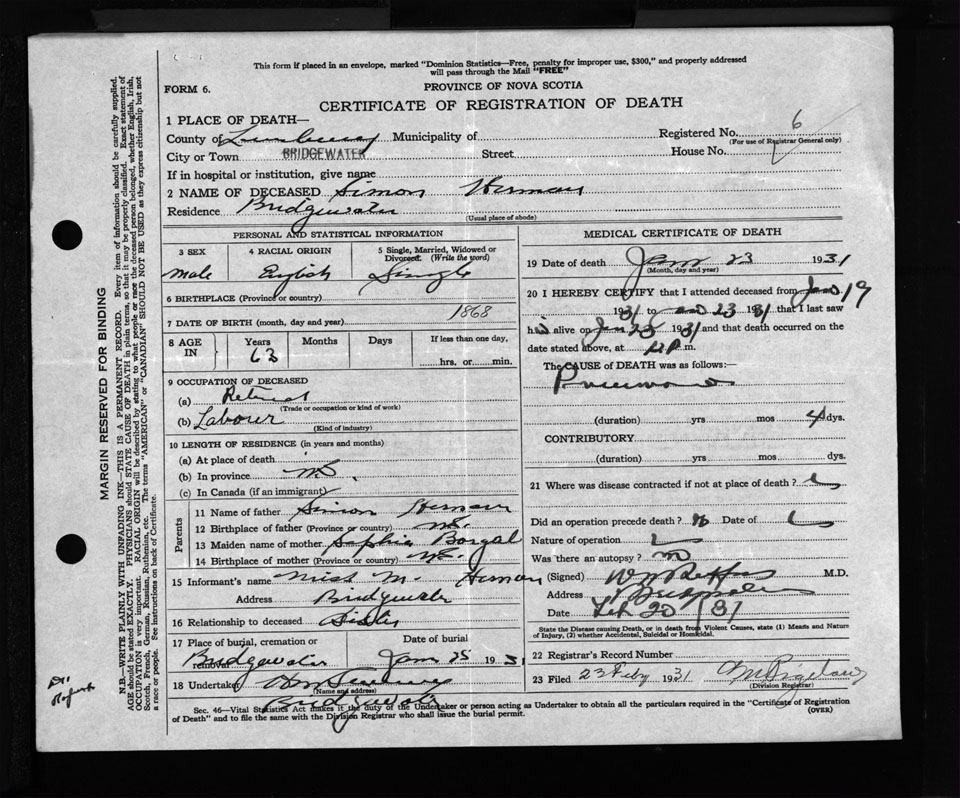 This form if placed in an envelope, marked "Dominion Statistics—Free, penalty for improper use, $300," and properly addressed
will pass through the Mail "FREE"
FORM 6.
PROVINCE OF NOVA SCOTIA
CERTIFICATE OF REGISTRATION OF DEATH
1 PLACE OF DEATH—
County of Lunenburg Municipality of
Registered No. 6
(For use of Registrar General only)
City or Town BRIDGEWATER Street House No.
If in hospital or institution, give name
2 NAME OF DECEASED Simon Herman
Residence Bridgewater
(Usual place of abode)
PERSONAL AND STATISTICAL INFORMATION
3 SEX 4 RACIAL ORIGIN 5 Single, Married, Widowed or
Divorced. (Write the word)
Male English Single
6 BIRTHPLACE (Province or country)
7 DATE OF BIRTH (month, day and year) 1868
8 AGE IN Years Months Days If less than one day,
63 hrs. or min.
9 OCCUPATION OF DECEASED
(a) Retired
(Trade or occupation or kind of work)
(b) Labour
(Kind of industry)
10 LENGTH OF RESIDENCE (in years and months)
(a) At place of death
(b) In province
(c) In Canada (if an immigrant)
Parents
11 Name of father Simon Herman
12 Birthplace of father (Province or country) N.S.
13 Maiden name of mother Sophia
14 Birthplace of mother (Province or country) N.S.
15 Informant's name Miss M. Herman
Address Bridgewater
16 Relationship to deceased Sister
17 Place of burial, cremation or removal Date of burial
Bridgewater Jan 25 1931
18 Undertaker
(Name and address)
Bridgewater
MEDICAL CERTIFICATE OF DEATH
19 Date of death Jan 23 1931
(Month, day and year)
20 I HEREBY CERTIFY that I attended deceased from Jan 19
1931 to Jan 23 1931 that I last saw
him alive on Jan 23 1931 and that death occurred on
date stated above, at m.
The CAUSE of DEATH was as follows:—
Pneumonia
(duration) yrs mos 4 dys.
CONTRIBUTORY
(duration) yrs mos dys.
21 Where was disease contracted if not at place of death?
Did an operation precede death? no Date of
Nature of operation
Was there an autopsy? no
(Signed) M.D.
Address Bridgewater
Date Feb 20/31
State the Disease causing Death, or in death from Violent Causes, state (1) Means and Nature
of Injury, (2) whether Accidental, Suicidal or Homicidal.
22 Registrar's Record Number
23 Filed 23 Feby 1931
(Division Registrar)
Sec. 46—Vital Statistics Act makes it the duty of the Undertaker or person acting as Undertaker to obtain all the particulars required in the "Certificate of Registration
of Death" and to file the same with the Division Registrar who shall issue the burial permit. (OVER)
MARGIN RESERVED FOR BINDING
N.B.—WRITE PLAINLY WITH UNFADING INK—THIS IS A PERMANENT RECORD. Every item of information should be carefully supplied.
AGE should be stated EXACTLY. PHYSICIANS should STATE CAUSE OF DEATH in plain terms, so that it may be properly classified. Exact statement of
OCCUPATION is very important. RACIAL ORIGIN will be described by stating to what people or race the deceased person belonged, whether English, Irish,
Scotch, French, German, Russian, Ruthenian, etc. The terms "AMERICAN" or "CANADIAN" SHOULD NOT BE USED as they express citizenship but not
a race or people. See instructions on back of Certificate.